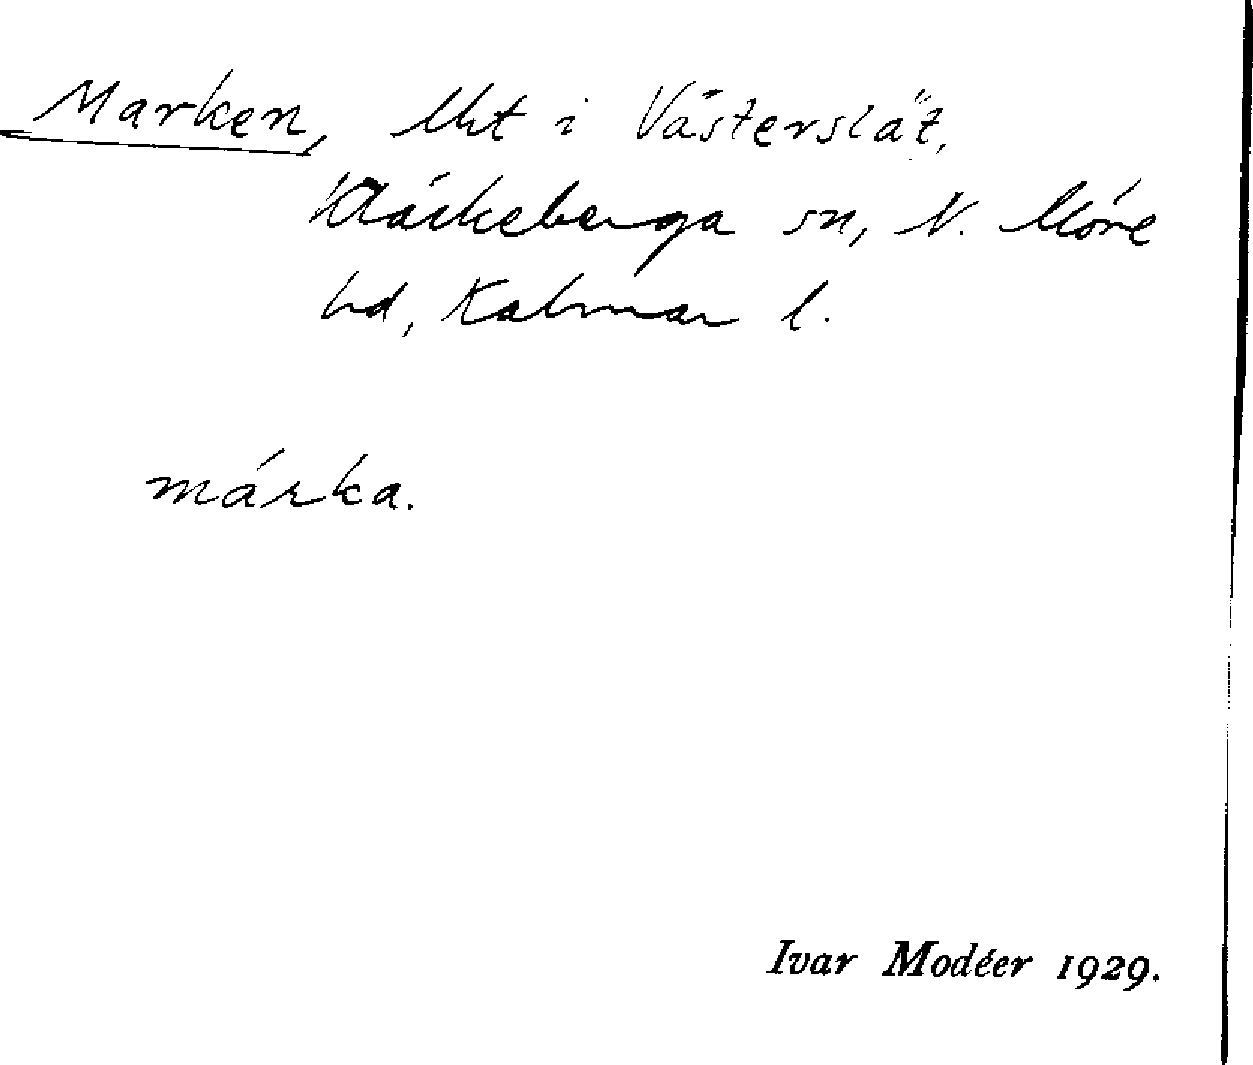 Marken, Mt i Västerslät,
Kläckeberga sn, N. Möre
hd, Kalmar l.
márka.
Ivar Modéer 1929.